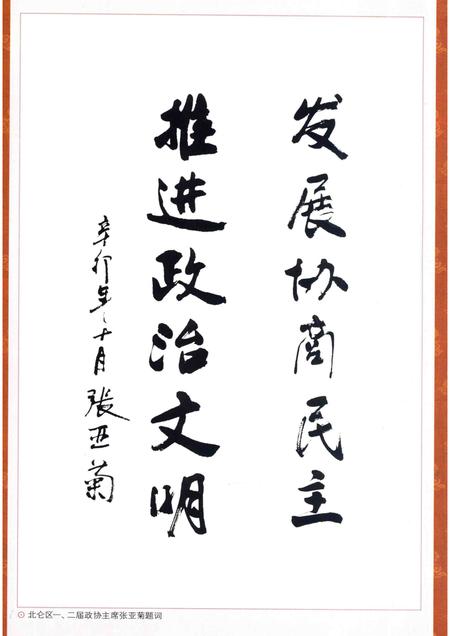 发展协商民主
推进政治文明
辛卯年十月 张亚菊
北仑区一、二届政协主席张亚菊题词